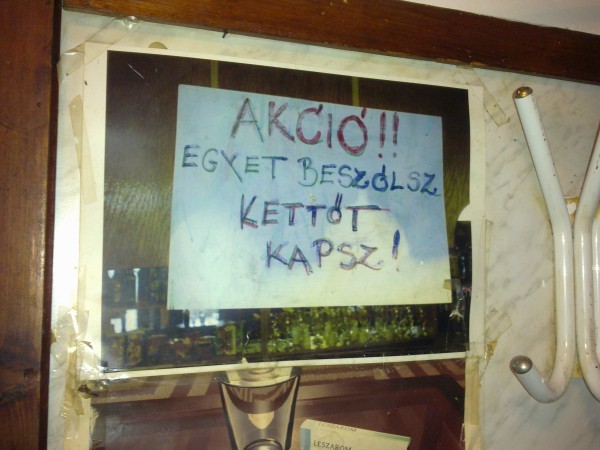 AKCIÓ!!
EGYET BESZÓLSZ
KETTŐT
KAPSZ!
LESZAROM
LESZAROM